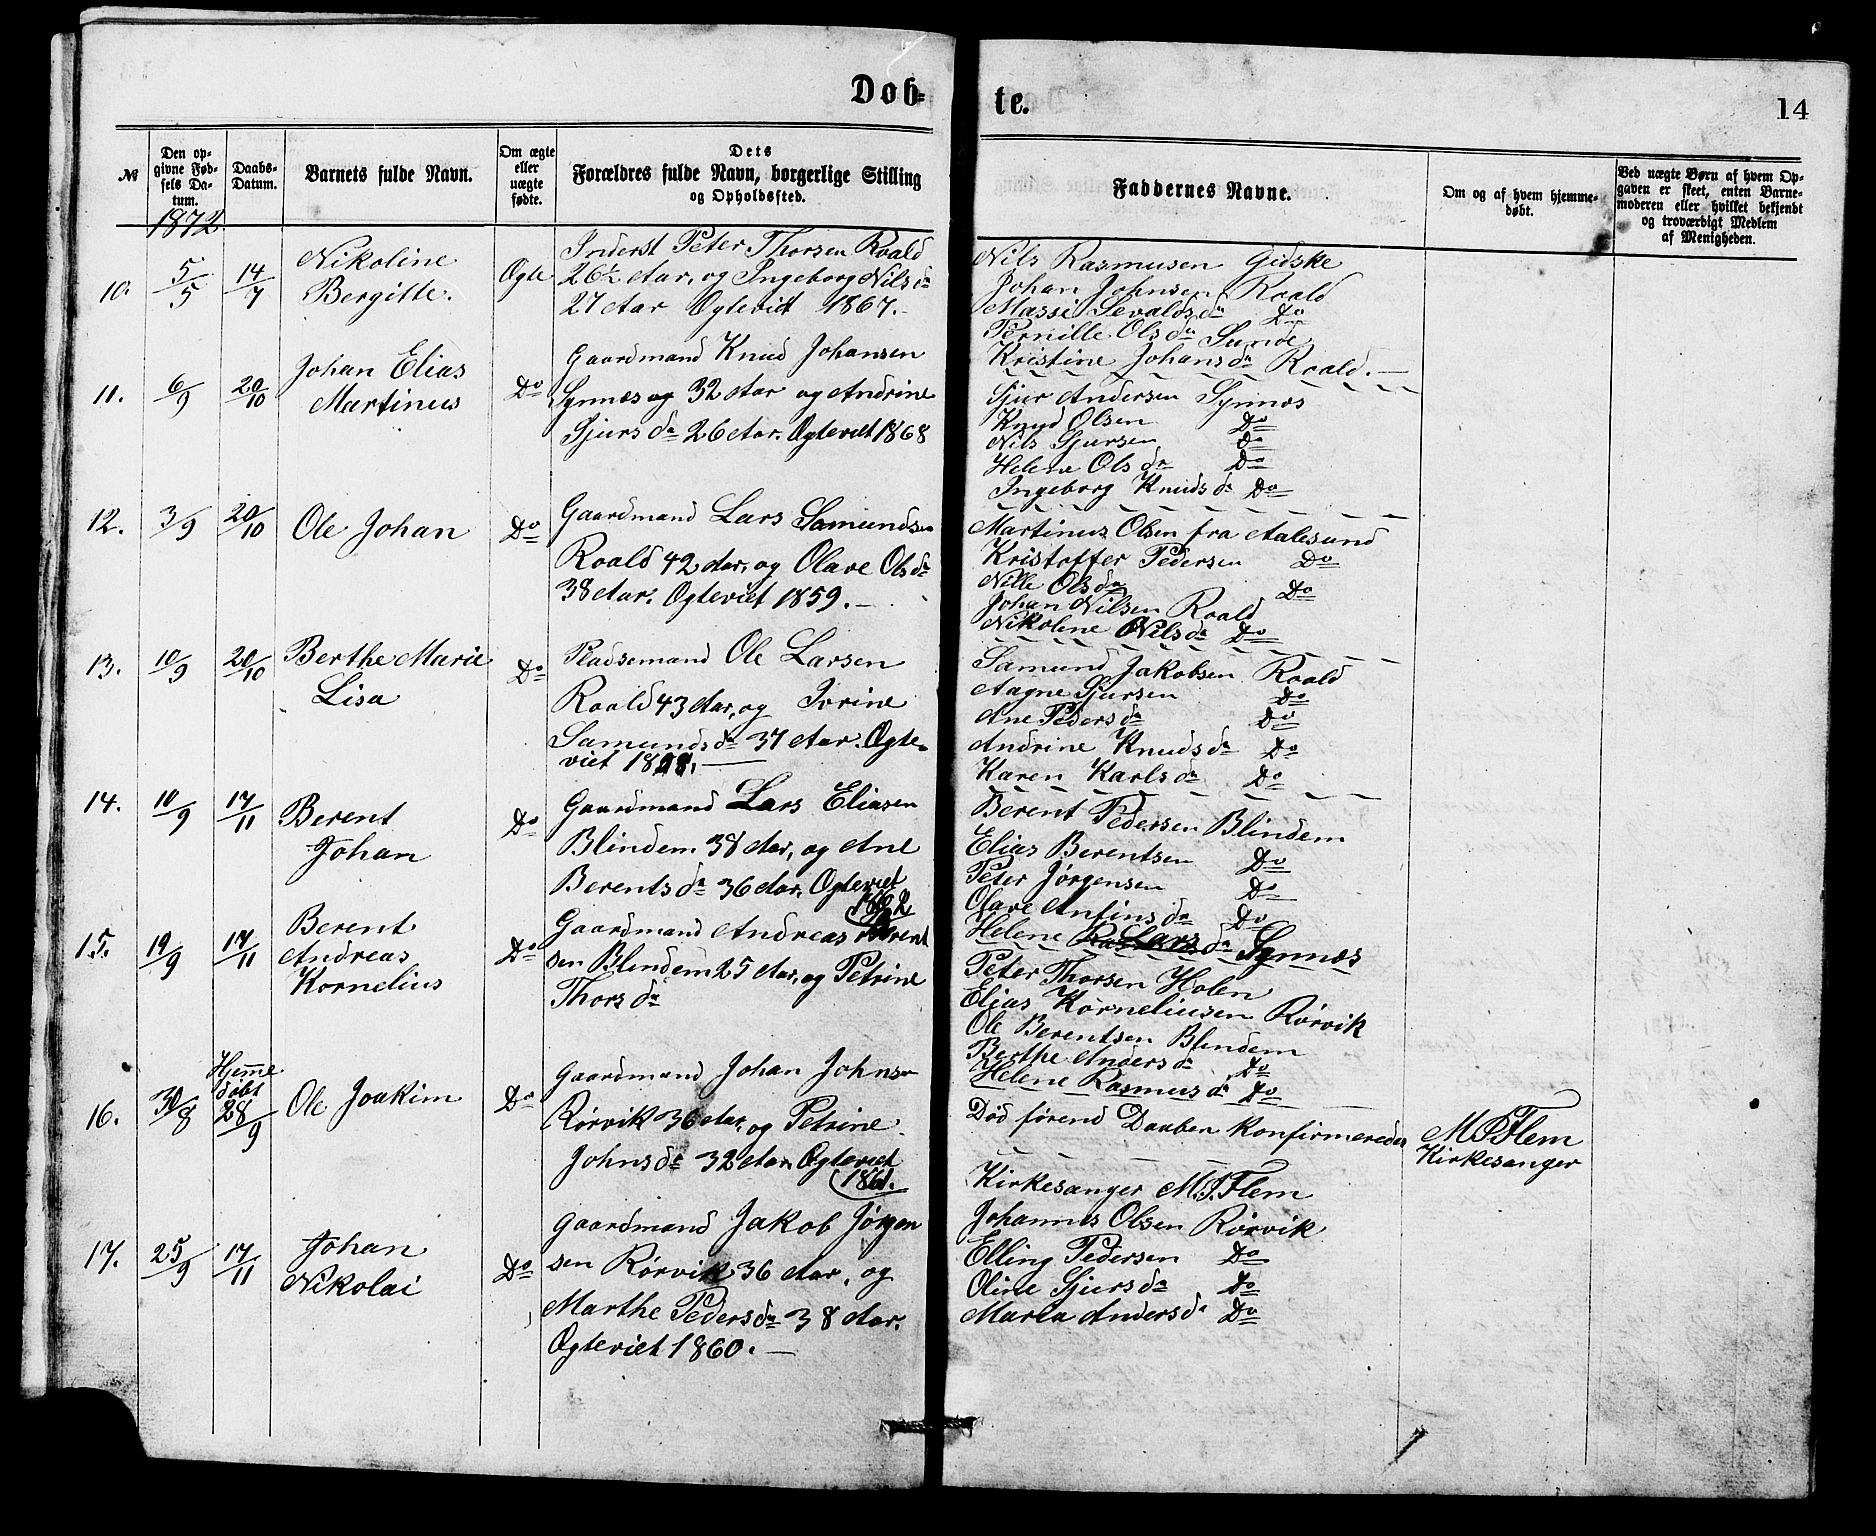 Døb-
te.
14
№
Den op-
givne Fød-
sels Da-
tum.
Daabs-
Datum.
Barnets fulde Navn.
Om ægte
eller
uægte
fødte.
Dets
Forældres fulde Navn, borgerlige Stilling
og Opholdssted.
Faddernes Navne.
Om og af hvem hjemme-
døbt.
Ved uægte Børn af hvem Op-
gaven er skeet, enten Barne-
moderen eller hvilket bekjendt
og troværdigt Medlem
af Menigheden.
1872
10.
5/5
14/7
Nikoline
Bergitte.
Ægte
Inderst Peter Thorsen Roald
26½ Aar, og Ingeborg Nilsdr
27 Aar Ægteviet 1867.-
Nils Rasmusen Gidske
Johan Johnsen Roald
Massi Sevaldsdr Do
Pernille Olsdr Sunde
Kristine Johansdr Roald.—
11.
6/9
20/10
Johan Elias
Martinus
Do
Gaardmand Knud Johansen
Synnes og 32 Aar og Andrine
Sjursdr 26 Aar. Ægteviet 1868
Sjur Andersen Synnes
Knud Olsen Do
Nils Sjursen Do
Helene Olsdr Do
Ingeborg Knudsdr Do
12.
3/9
20/10
Ole Johan
Do
Gaardmand Lars Samundsen
Roald 42 Aar, og Olave Olsdr
38 Aar. Ægteviet 1859.—
Martinus Olsen fra Aalesund
Kristoffer Pedersen Do
Nille Olsdr Do
Johan Nilsen Roald
Nikoline Nilsdr Do
13.
10/9
20/10
Berthe Marie
Lisa
Do
Pladsemand Ole Larsen
Roald 43 Aar, og Ivrine
Samundsdr 37 Aar. Ægte-
viet 18
Samund Jakobsen Roald
Aagne Sjursen Do
Ane Pedersdr Do
Andrine Knudsdr Do
Karen Karlsdr Do
14.
10/9
17/11
Berent
Johan
Do
Gaardmand Lars Eliasen
Blindem 38 Aar, og Ane
Berentsdr 36 Aar. Ægteviet
1862
Berent Pedersen Blindem
Elias Berentsen Do
Peter Jørgensen Do
Olave Anfinsdr Do
Helene Larsdr Synnes
15.
19/9
17/11
Berent
Andreas
Kornelius
Do
Gaardmand Andreas Berent
sen Blindem 25 Aar, og Petrine
Thorsdr
Peter Thorsen Holen
Elias Korneliusen Rørvik
Ole Berentsen Blindem
Berthe Andersdr Do
Helene Rasmusdr Do
16.
30/8
Hjemme
døbt
28/9
Ole Joakim
Do
Gaardmand Johan Johnsen
Rørvik 36 Aar, og Petrine
Johnsdr 32 Aar. Ægteviet
1861.
Død førend Daaben Konfirmeredes
M P Flem
Kirkesanger
17.
25/9
17/11
Johan
Nikolai
Do
Gaardmand Jakob Jørgen
sen Rørvik 36 Aar, og
Marthe Pedersdr 38 Aar.
Ægteviet 1860.—
Kirkesanger M. P. Flem
Johannes Olsen Rørvik
Elling Pedersen Do
Oline Sjursdr Do
Maria Andersdr Do